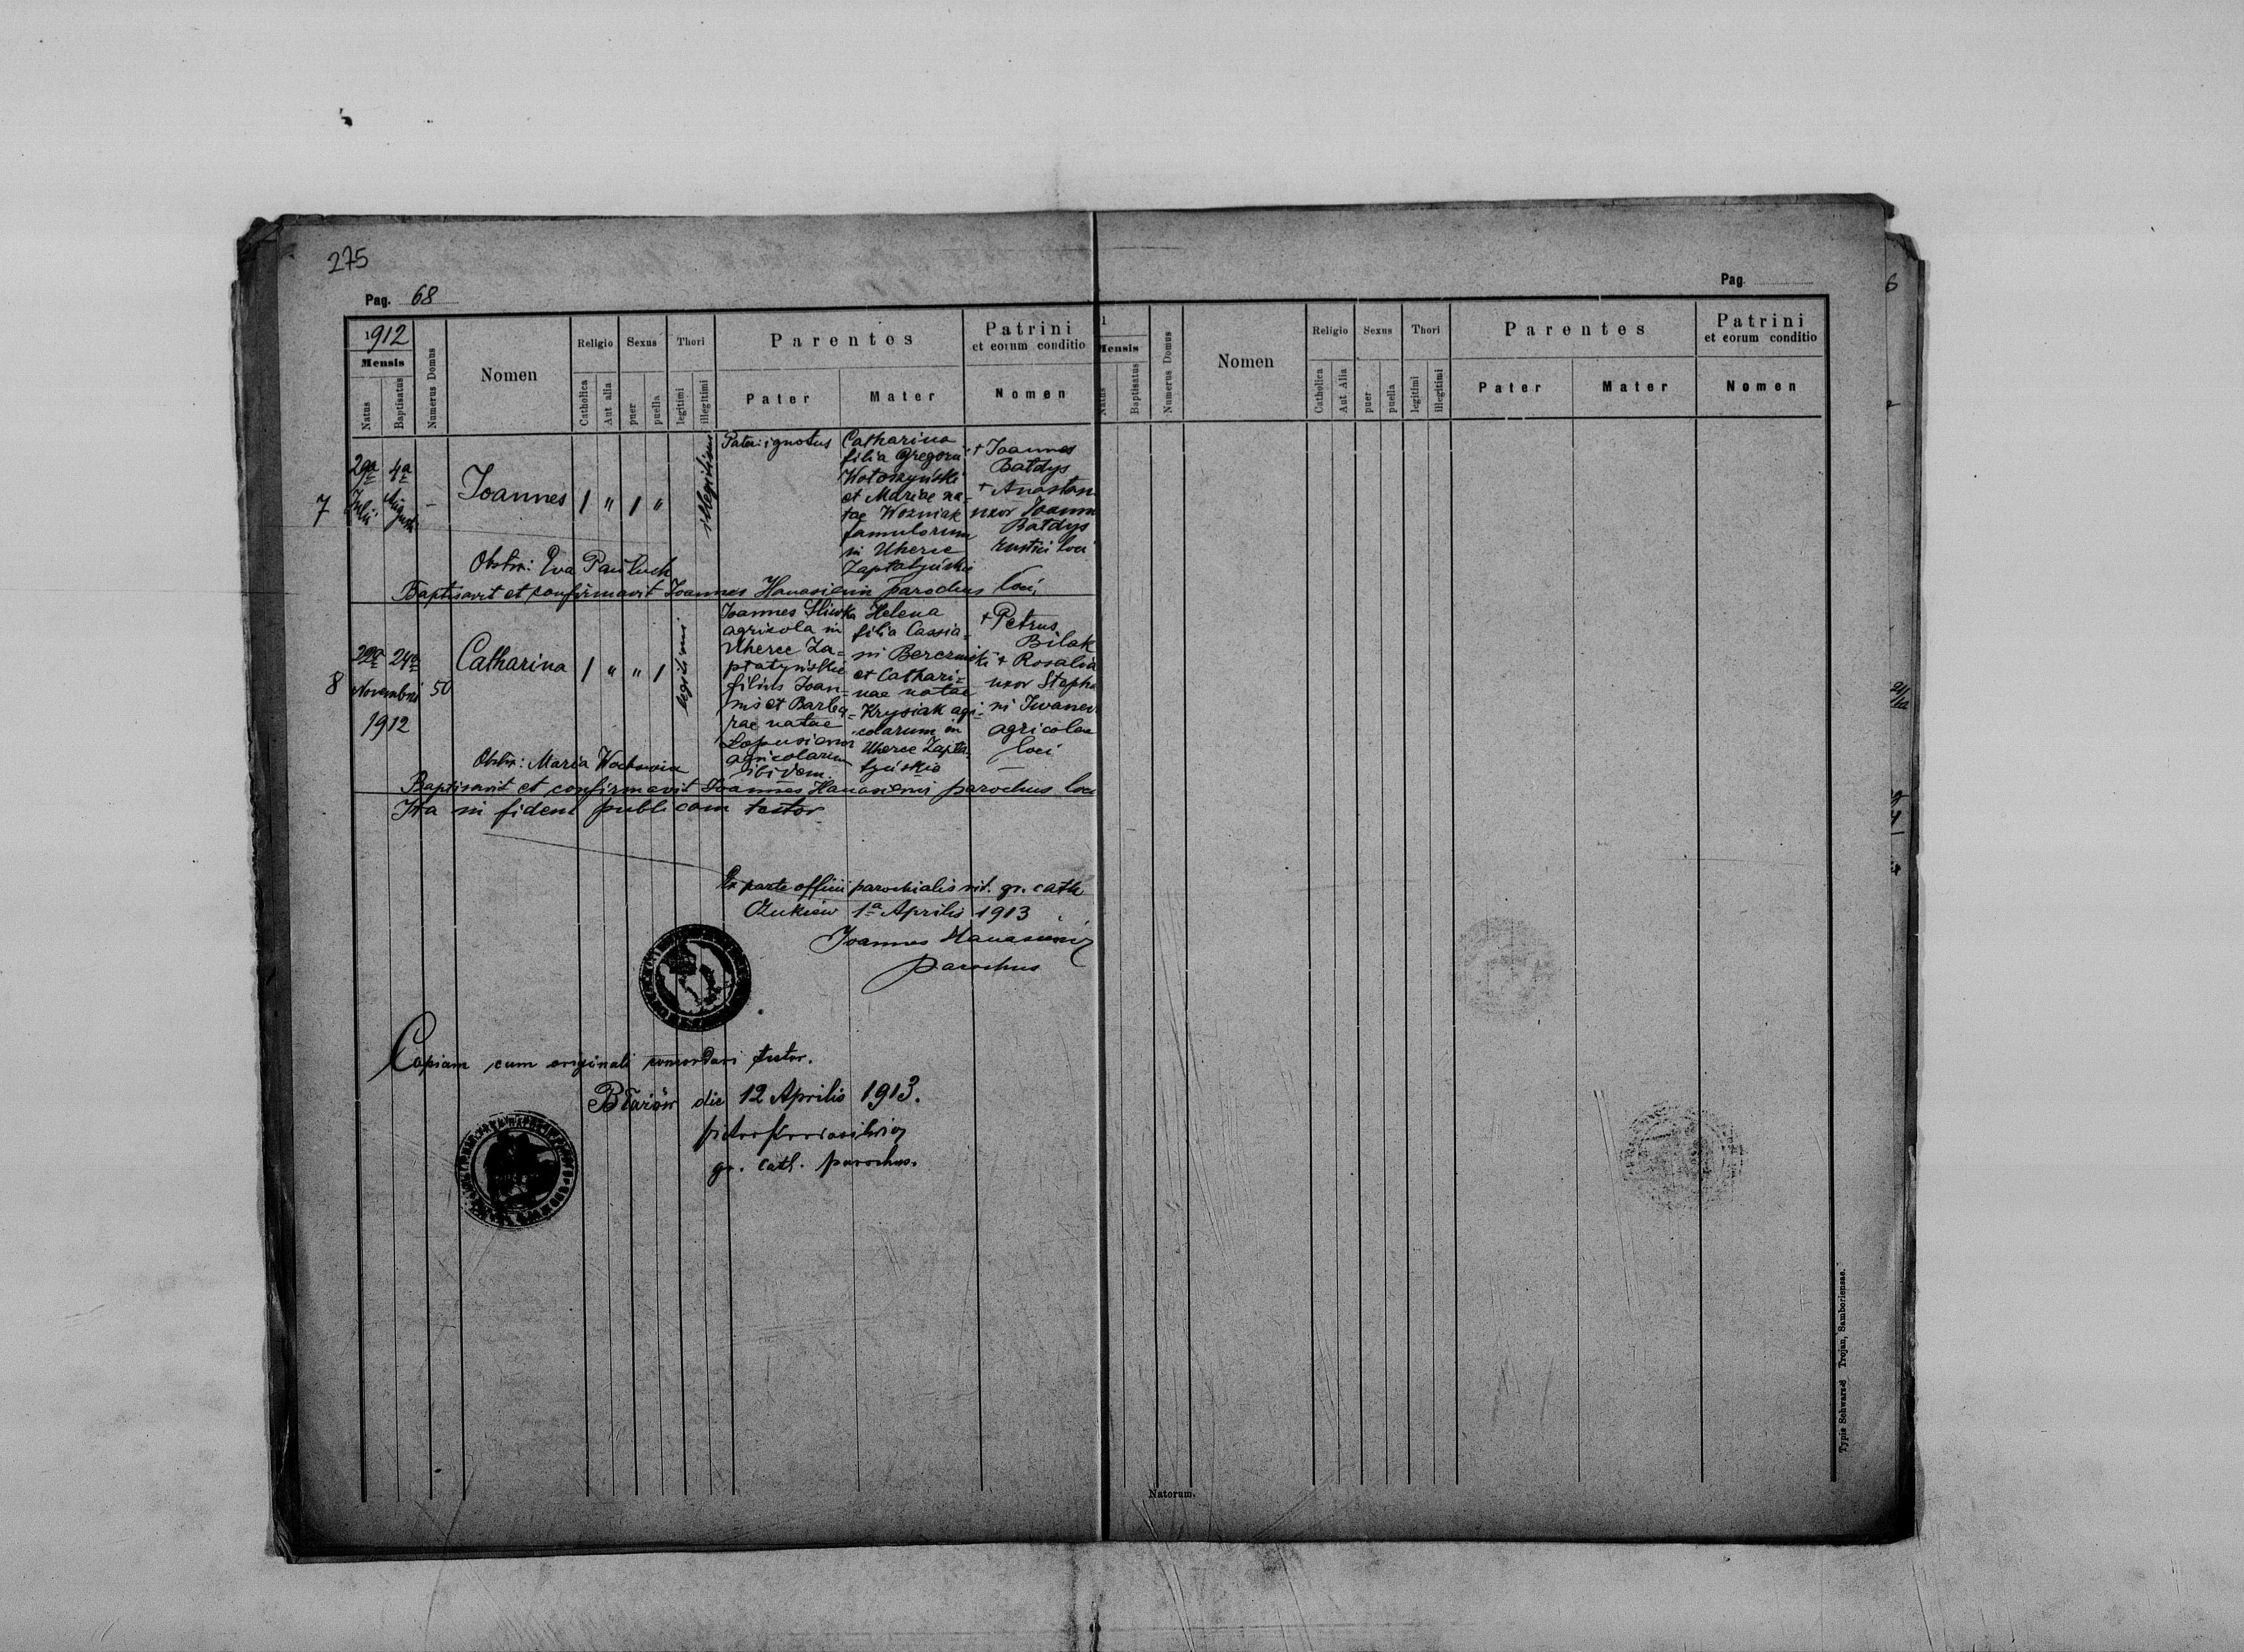 275
Pag. 68
1912
Mensis
Natus
Baptisatus
Numerus Domus
Nomen
Religio
Catholica
Aut alia
Sexus
puer
puella
Thori
legitimi
illegitimi
Parentes
Pater
Mater
Patrini
et eorum conditio
Nomen
7
29a
Julii
4a
Augusti
-
Joannes
1 " 1 "
illegitimi
Pater: ignotus
Catharina
filia Gregorii
Wołoszyński
et Mariae na-
tae Wozniak
famulorum
in Uherce
Zapłatyńskie
+ Joannes
Bałdys
+ Anastas
uxor Joann
Bałdys
rustici loci
Obstr: Eva Pauluch
Baptisavit et confirmavit Joannes parochus loci
8
22a
24a
Novembris
1912
50
Catharina
1 " " 1
legitimi
Joannes Sliwka
agricola in
Uherce Za-
płatyńskie
filius Joan-
nis et Barba-
rae natae
agricolarum
ibidem.
Helena
filia Cassia-
ni Bereznicki
et Cathari-
nae natae
Krysiak agi-
colarum in
Uherce Zapła-
tyńskie
+ Petrus
Bilak
+ Rosalia
uxor Stepha
ni Iwanev
agricolae
loci
Obstr: Maria
Baptisavit et confirmavit Joannes parochus loci
Ita in fidem publicam testor
Ex parte officii parochialis rit. gr. cath
1a Aprilis 1913
Joannes
parochus
Copiam cum originali concordari testor.
Błażów die 12 Aprilis 1913.
gr. cath. parochus.
Pag.
1
Mensis
Natus
Baptisatus
Numerus Domus
Nomen
Religio
Catholica
Aut Alia
Sexus
puer
puella
Thori
legitimi
illegitimi
Parentes
Pater
Mater
Patrini
et eorum conditio
Nomen
Natorum.
Typis Schwarz & Trojan, Samboriensae.